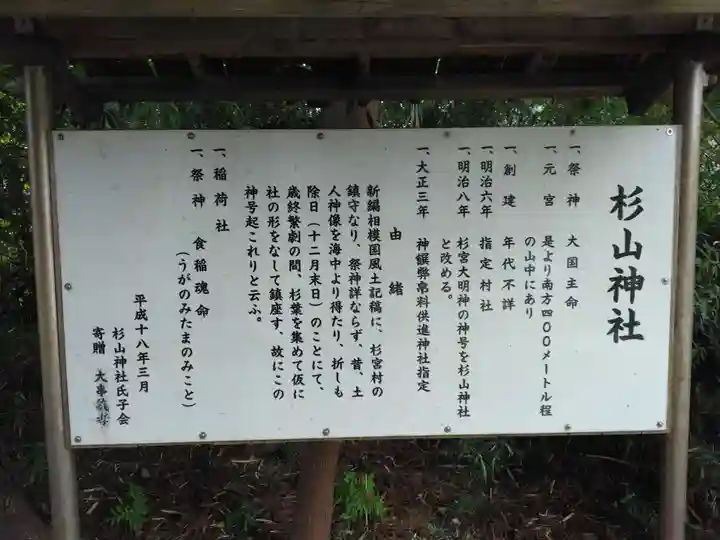 杉山神社
一、祭神 大国主命
一、元宮 是より南方四〇〇メートル程
の山中にあり
一、創建 年代不詳
一、明治六年 指定村社
一、明治八年 杉宮大明神の神号を杉山神社
と改める。
一、大正三年 神饌弊帛料供進神社指定
由緒
新編相模国風土記稿に、杉宮村の
鎮守なり、祭神詳ならず、昔、土
人神像を海中より得たり、折しも
除日(十二月末日)のことにて、
歳終繁劇の間、杉葉を集めて仮に
社の形をなして鎮座す、故にこの
神号起これりと云ふ。
一、稲荷社
一、祭神 食稲魂命
(うがのみたまのみこと)
平成十八年三月
杉山神社氏子会
寄贈